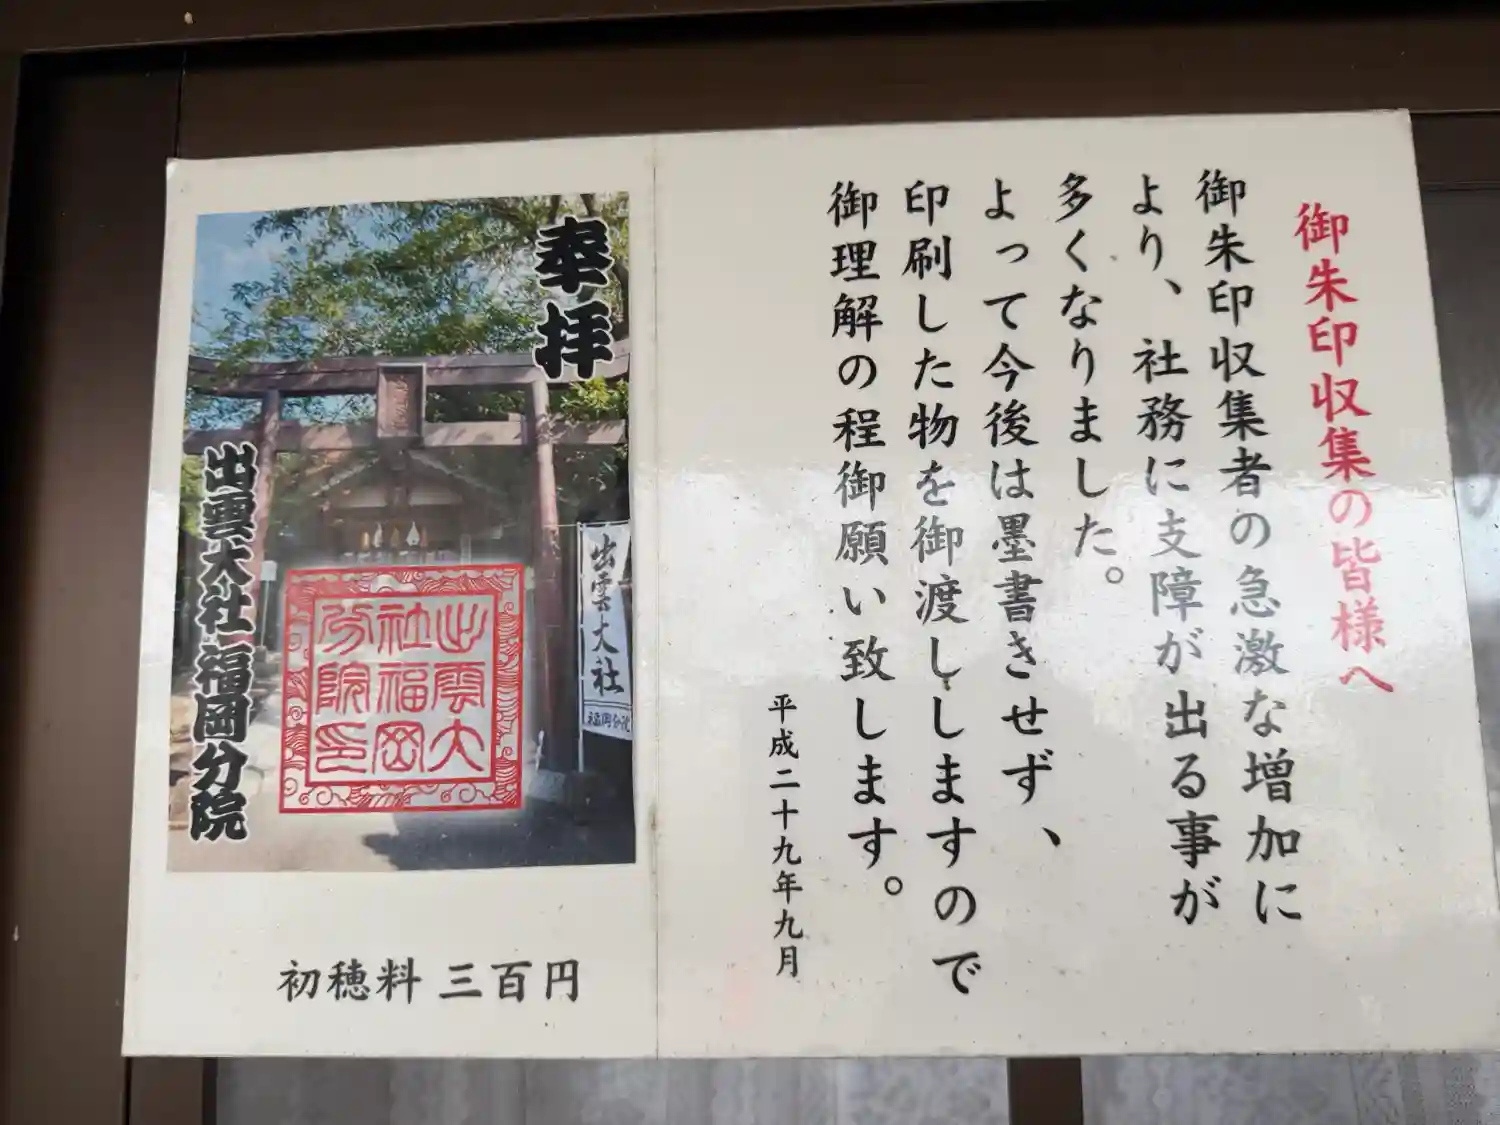 御朱印収集の皆様へ
御朱印収集者の急激な増加に
より、社務に支障が出る事が
多くなりました。
よって今後は墨書きせず、
印刷した物を御渡ししますので
御理解の程御願い致します。
平成二十九年九月
奉拝
出雲大社福岡分院
出雲大
社福岡
分院印
出雲大社
福岡分院
初穂料 三百円